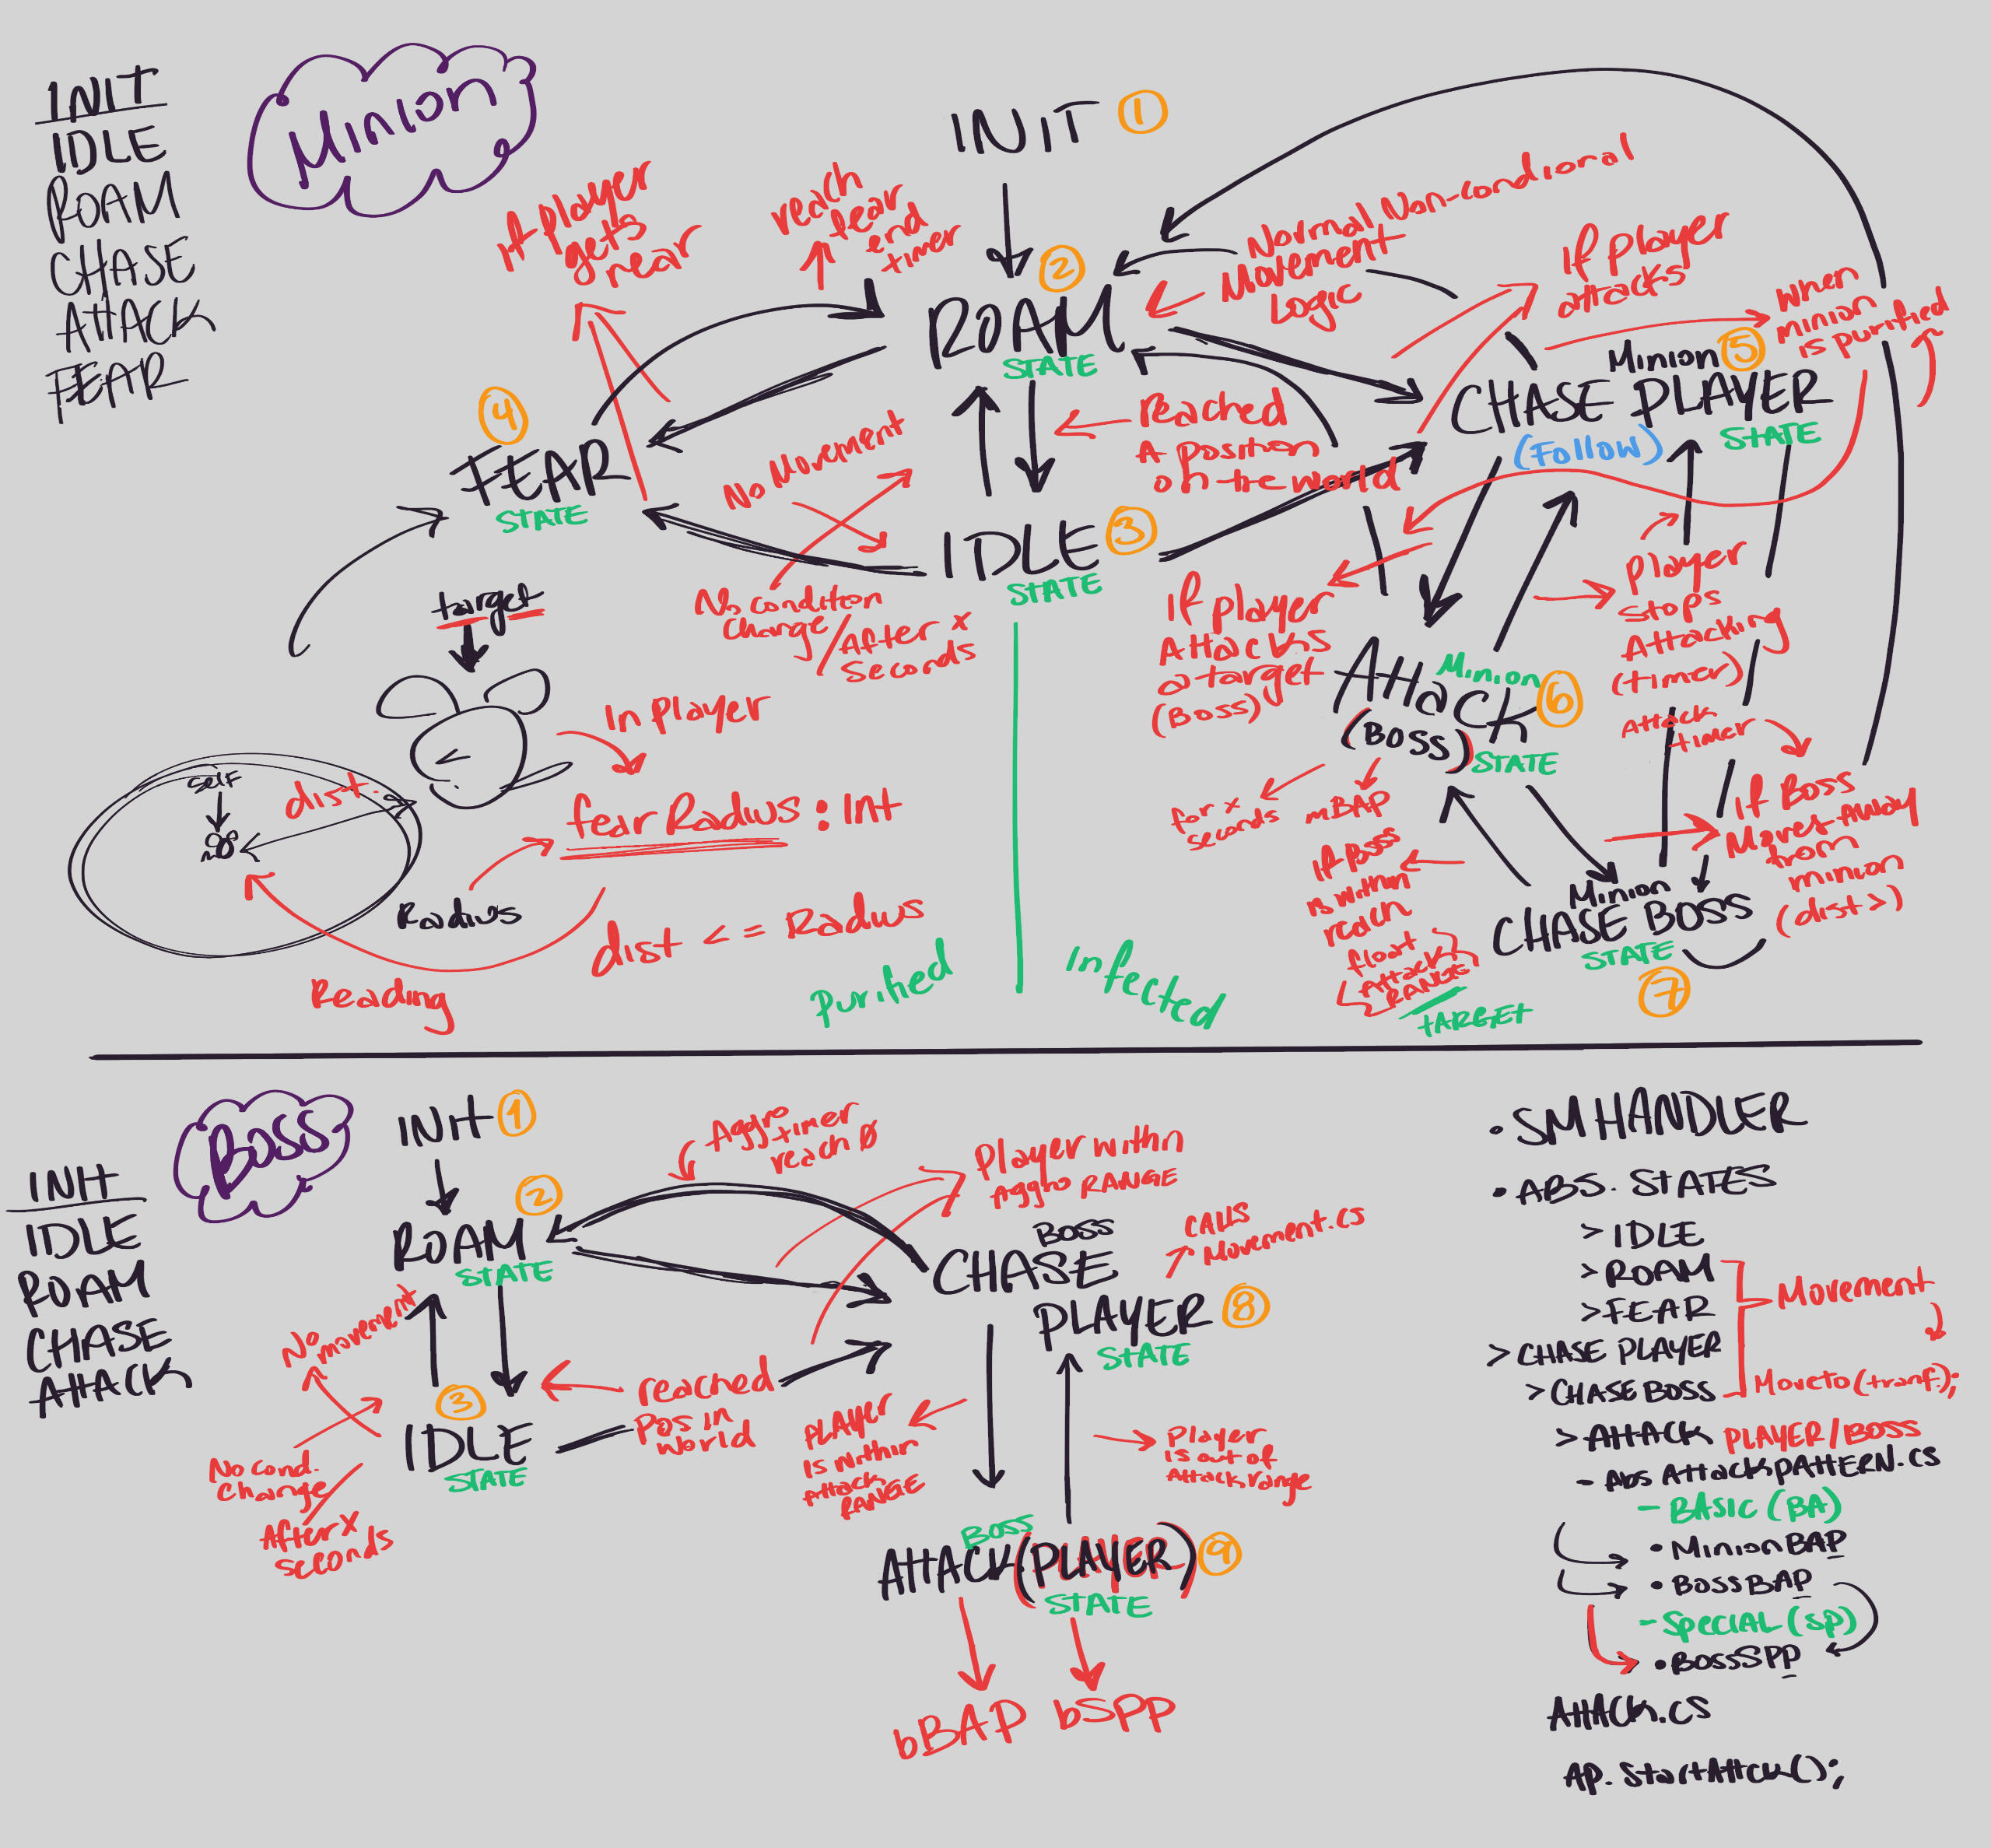 INIT
IDLE
ROAM
CHASE
ATTACK
FEAR
Minion
INIT 1
If player
gets
near
reach
fear
end
timer
2
ROAM
STATE
Normal Non-condioral
Movement
Logic
If player
attacks
When
minion
is purified
Minion 5
CHASE PLAYER
(Follow) STATE
4
FEAR
STATE
No Movement
reached
A position
on the world
IDLE 3
STATE
No condition
Change / After x
Seconds
target
In player
self
dist.
fearRadius : Int
Radius
dist <= Radius
Reading
Purified
Infected
If player
Attacks
a target
(Boss)
Player
stops
Attacking
(timer)
Attack
timer
Attack Minion 6
(BOSS) STATE
for x
seconds
mBAP
If Boss
is within
reach
float
Attack
RANGE
TARGET
If Boss
Moves Away
from
minion
(dist >)
Minion
CHASE BOSS
STATE
7
Boss
INIT
IDLE
ROAM
CHASE
ATTACK
INIT 1
2
ROAM
STATE
Aggro
timer
reach 0
Player within
Aggro RANGE
BOSS
CHASE
PLAYER 8
STATE
CALLS
Movement.cs
No
movement
3
IDLE
STATE
reached
Pos in
World
No cond.
Change
After x
seconds
PLAYER
Is within
Attack
RANGE
Player
is out of
Attack range
BOSS
ATTACK (PLAYER) 9
STATE
bBAP bSPP
• SM HANDLER
• ABS. STATES
> IDLE
> ROAM
> FEAR
> CHASE PLAYER
> CHASE BOSS
Movement
Moveto(tranf.);
> ATTACK PLAYER/BOSS
- Abs AttackPATTERN.cs
- BASIC (BA)
• MinionBAP
• BossBAP
- Special (SP)
• BossSPP
ATTACK.cs
AP.StartAttck();